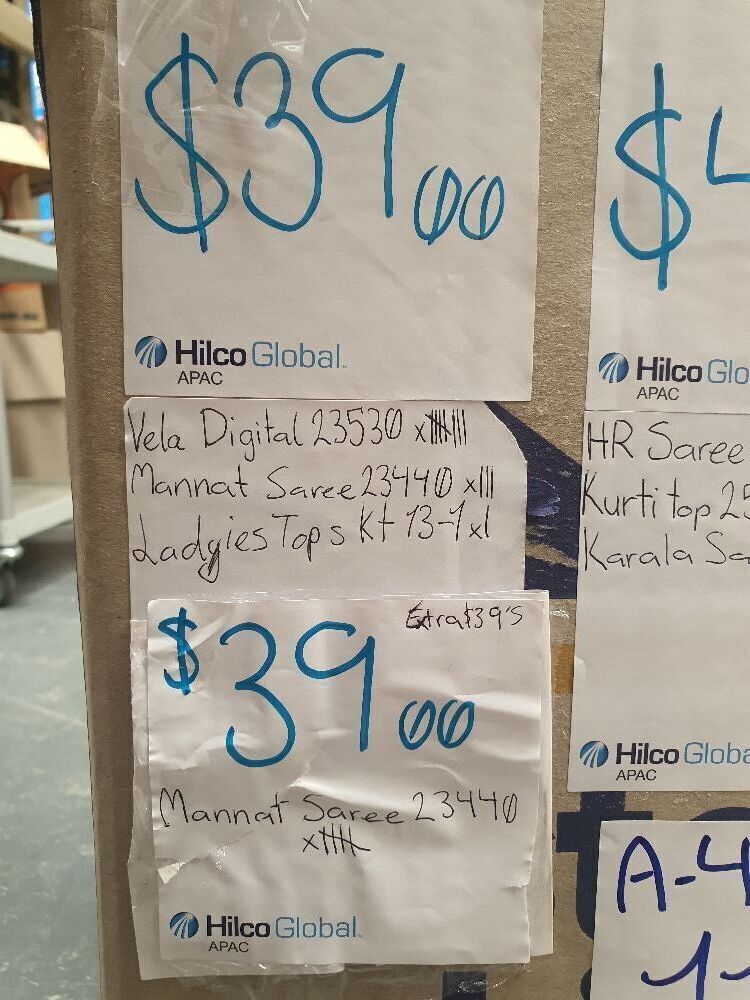 $39.00
Hilco Global
APAC
Vela Digital 23530 x卌|||
Mannat Saree 23440 x|||
Ladyies Tops Kt 13-1 x|
$39.00
Extra $39's
Mannat Saree 23440
x卌
Hilco Global
APAC
$4
Hilco Glo
APAC
HR Saree
Kurti top 25
Karala Sa
Hilco Globa
APAC
A-4